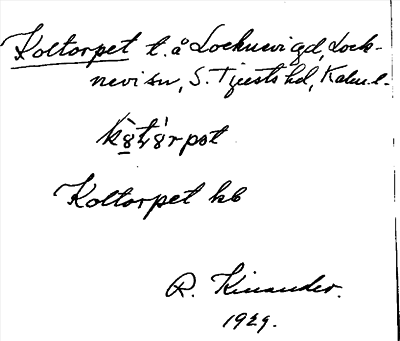 Koltorpet t. å Locknevi gd, Lock-
nevi sn, S. Tjusts hd, Kalm. l.
Koltorpet kb
R. Kinander.
1929.